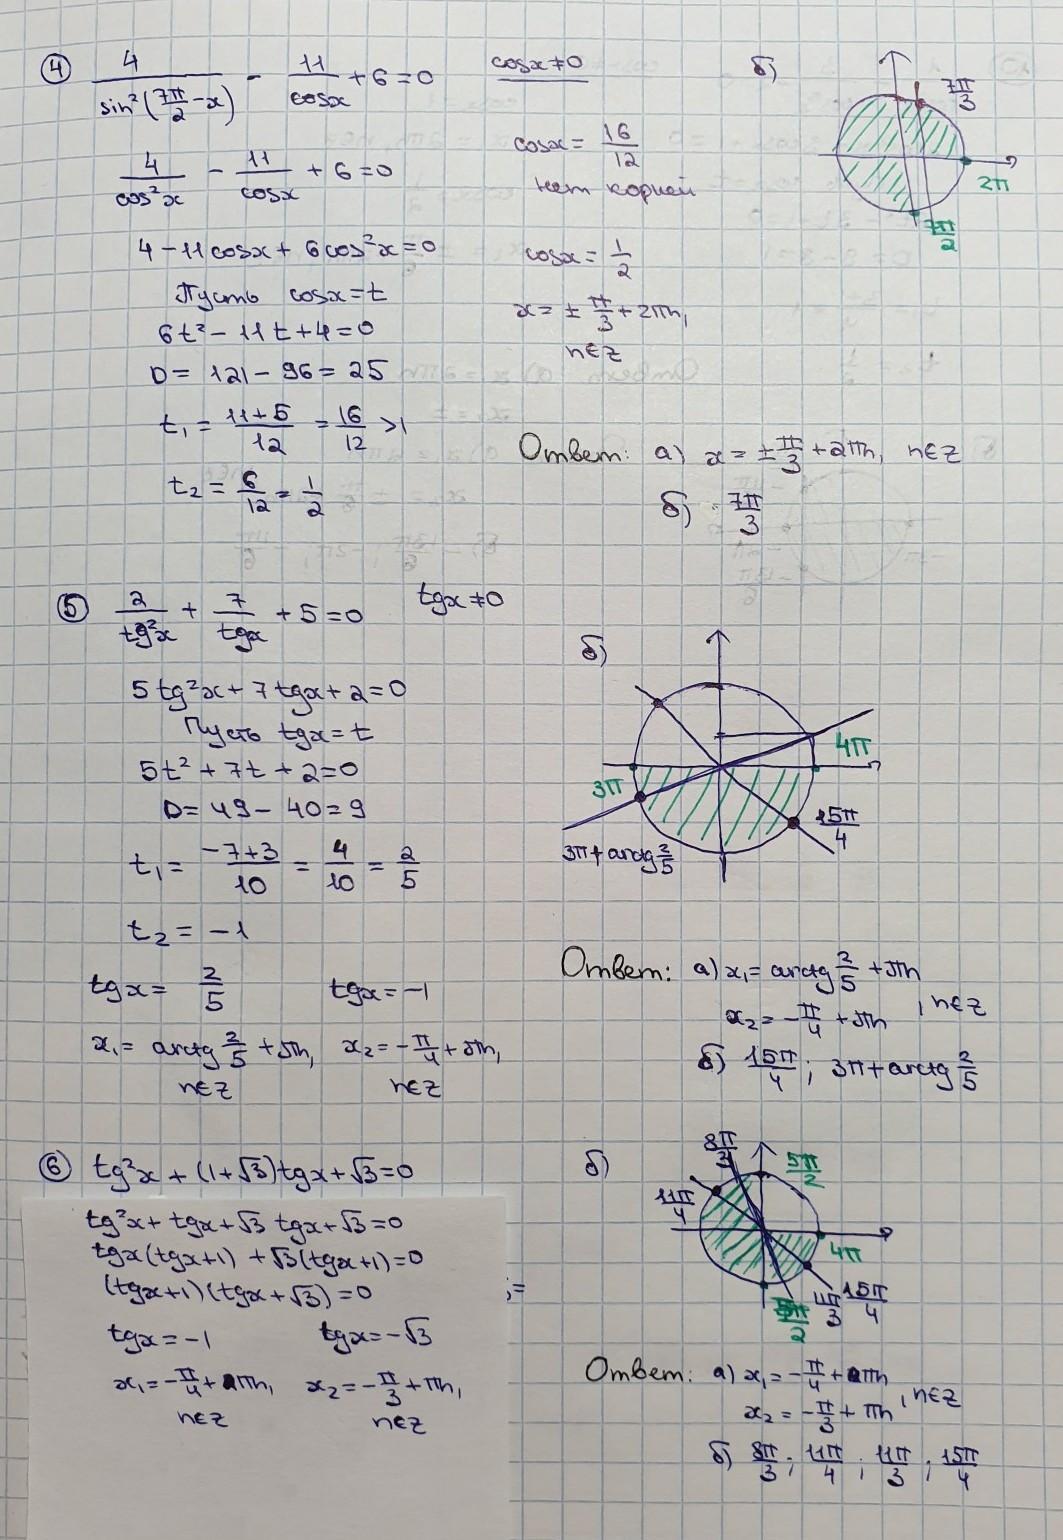 ④ 4/sin²(7π/2 - x) - 11/cosx + 6 = 0
cosx ≠ 0
4/cos²x - 11/cosx + 6 = 0
4 - 11cosx + 6cos²x = 0
Пусть cosx = t
6t² - 11t + 4 = 0
D = 121 - 96 = 25
t₁ = (11+5)/12 = 16/12 > 1
t₂ = 6/12 = 1/2
cosx = 16/12
нет корней
cosx = 1/2
x = ± π/3 + 2πn,
n∈Z
б)
7π/3
2π
7π/2
Ответ: а) x = ± π/3 + 2πn, n∈Z
б) 7π/3
⑤ 2/tg²x + 7/tgx + 5 = 0
tgx ≠ 0
5tg²x + 7tgx + 2 = 0
Пусть tgx = t
5t² + 7t + 2 = 0
D = 49 - 40 = 9
t₁ = (-7+3)/10 = 4/10 = 2/5
t₂ = -1
tgx = 2/5
tgx = -1
x₁ = arctg 2/5 + πn,
n∈Z
x₂ = -π/4 + πn,
n∈Z
б)
4π
3π
15π/4
3π + arctg 2/5
Ответ: а) x₁ = arctg 2/5 + πn
x₂ = -π/4 + πn , n∈Z
б) 15π/4; 3π + arctg 2/5
⑥ tg²x + (1+√3)tgx + √3 = 0
tg²x + tgx + √3 tgx + √3 = 0
tgx(tgx+1) + √3(tgx+1) = 0
(tgx+1)(tgx+√3) = 0
tgx = -1
tgx = -√3
x₁ = -π/4 + πn,
n∈Z
x₂ = -π/3 + πn,
n∈Z
б)
8π/3
5π/2
11π/4
4π
11π/3
15π/4
Ответ: а) x₁ = -π/4 + πn
x₂ = -π/3 + πn , n∈Z
б) 8π/3; 11π/4; 11π/3; 15π/4